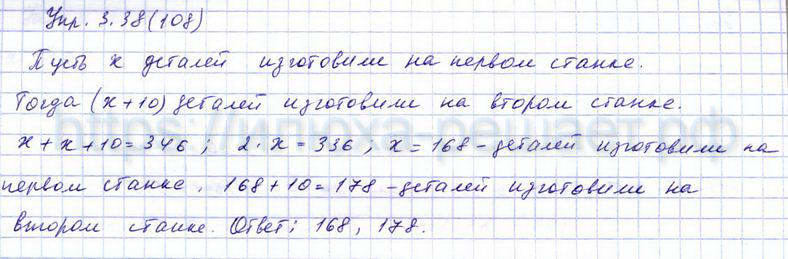 Упр. 3.38(108)
Пусть x деталей изготовили на первом станке.
Тогда (x+10) деталей изготовили на втором станке.
x+x+10=346; 2·x=336; x=168-деталей изготовили на
первом станке. 168+10=178-деталей изготовили на
втором станке. Ответ: 168, 178.